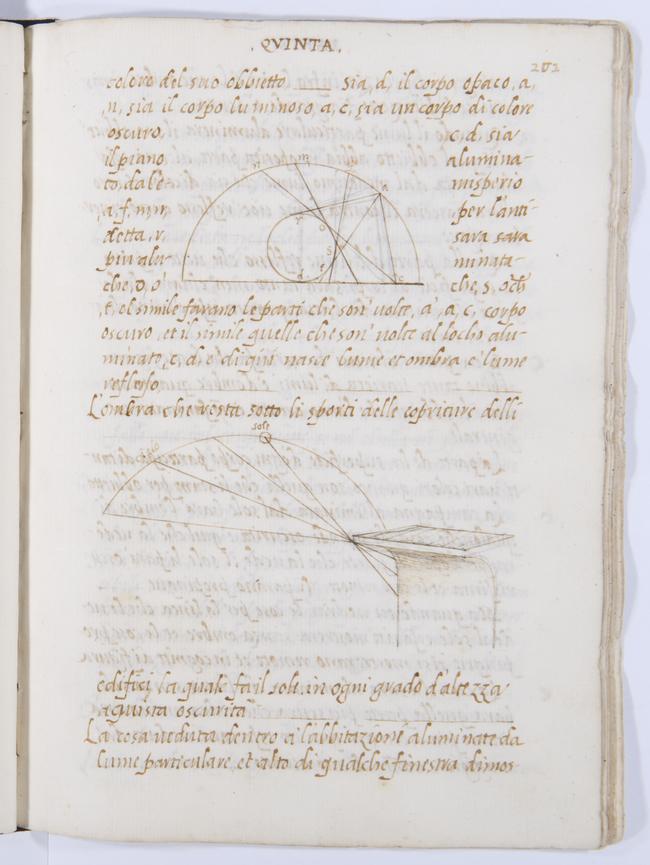 . QVINTA .
202
colore del suo obbietto Sia, d, il corpo opaco, a,
n, sia il corpo luminoso, a, c, sia un corpo di colore
oscuro, c, d, sia
il piano alumina-
to, dal'e misperio
a, f, m, n, per l'anti
detta, r, sara sara
piu alu minata-
che, o, o' che, s, och
t, el simile farano le parti che son' volte, a', a, c, corpo
oscuro, et il simile quelle che son' volte al locho alu-
minato, c, d, e' di qui nasce lume et ombra, e' lume
reflesso
L'ombra che resta sotto li sporti delle copriture delli
sole
edifici la quale fa il sole in ogni grado d'altezza
aquista oscurita
La cosa veduta dentro a l'abbitazione aluminate da
lume particulare, et alto di qualche finestra dimos-